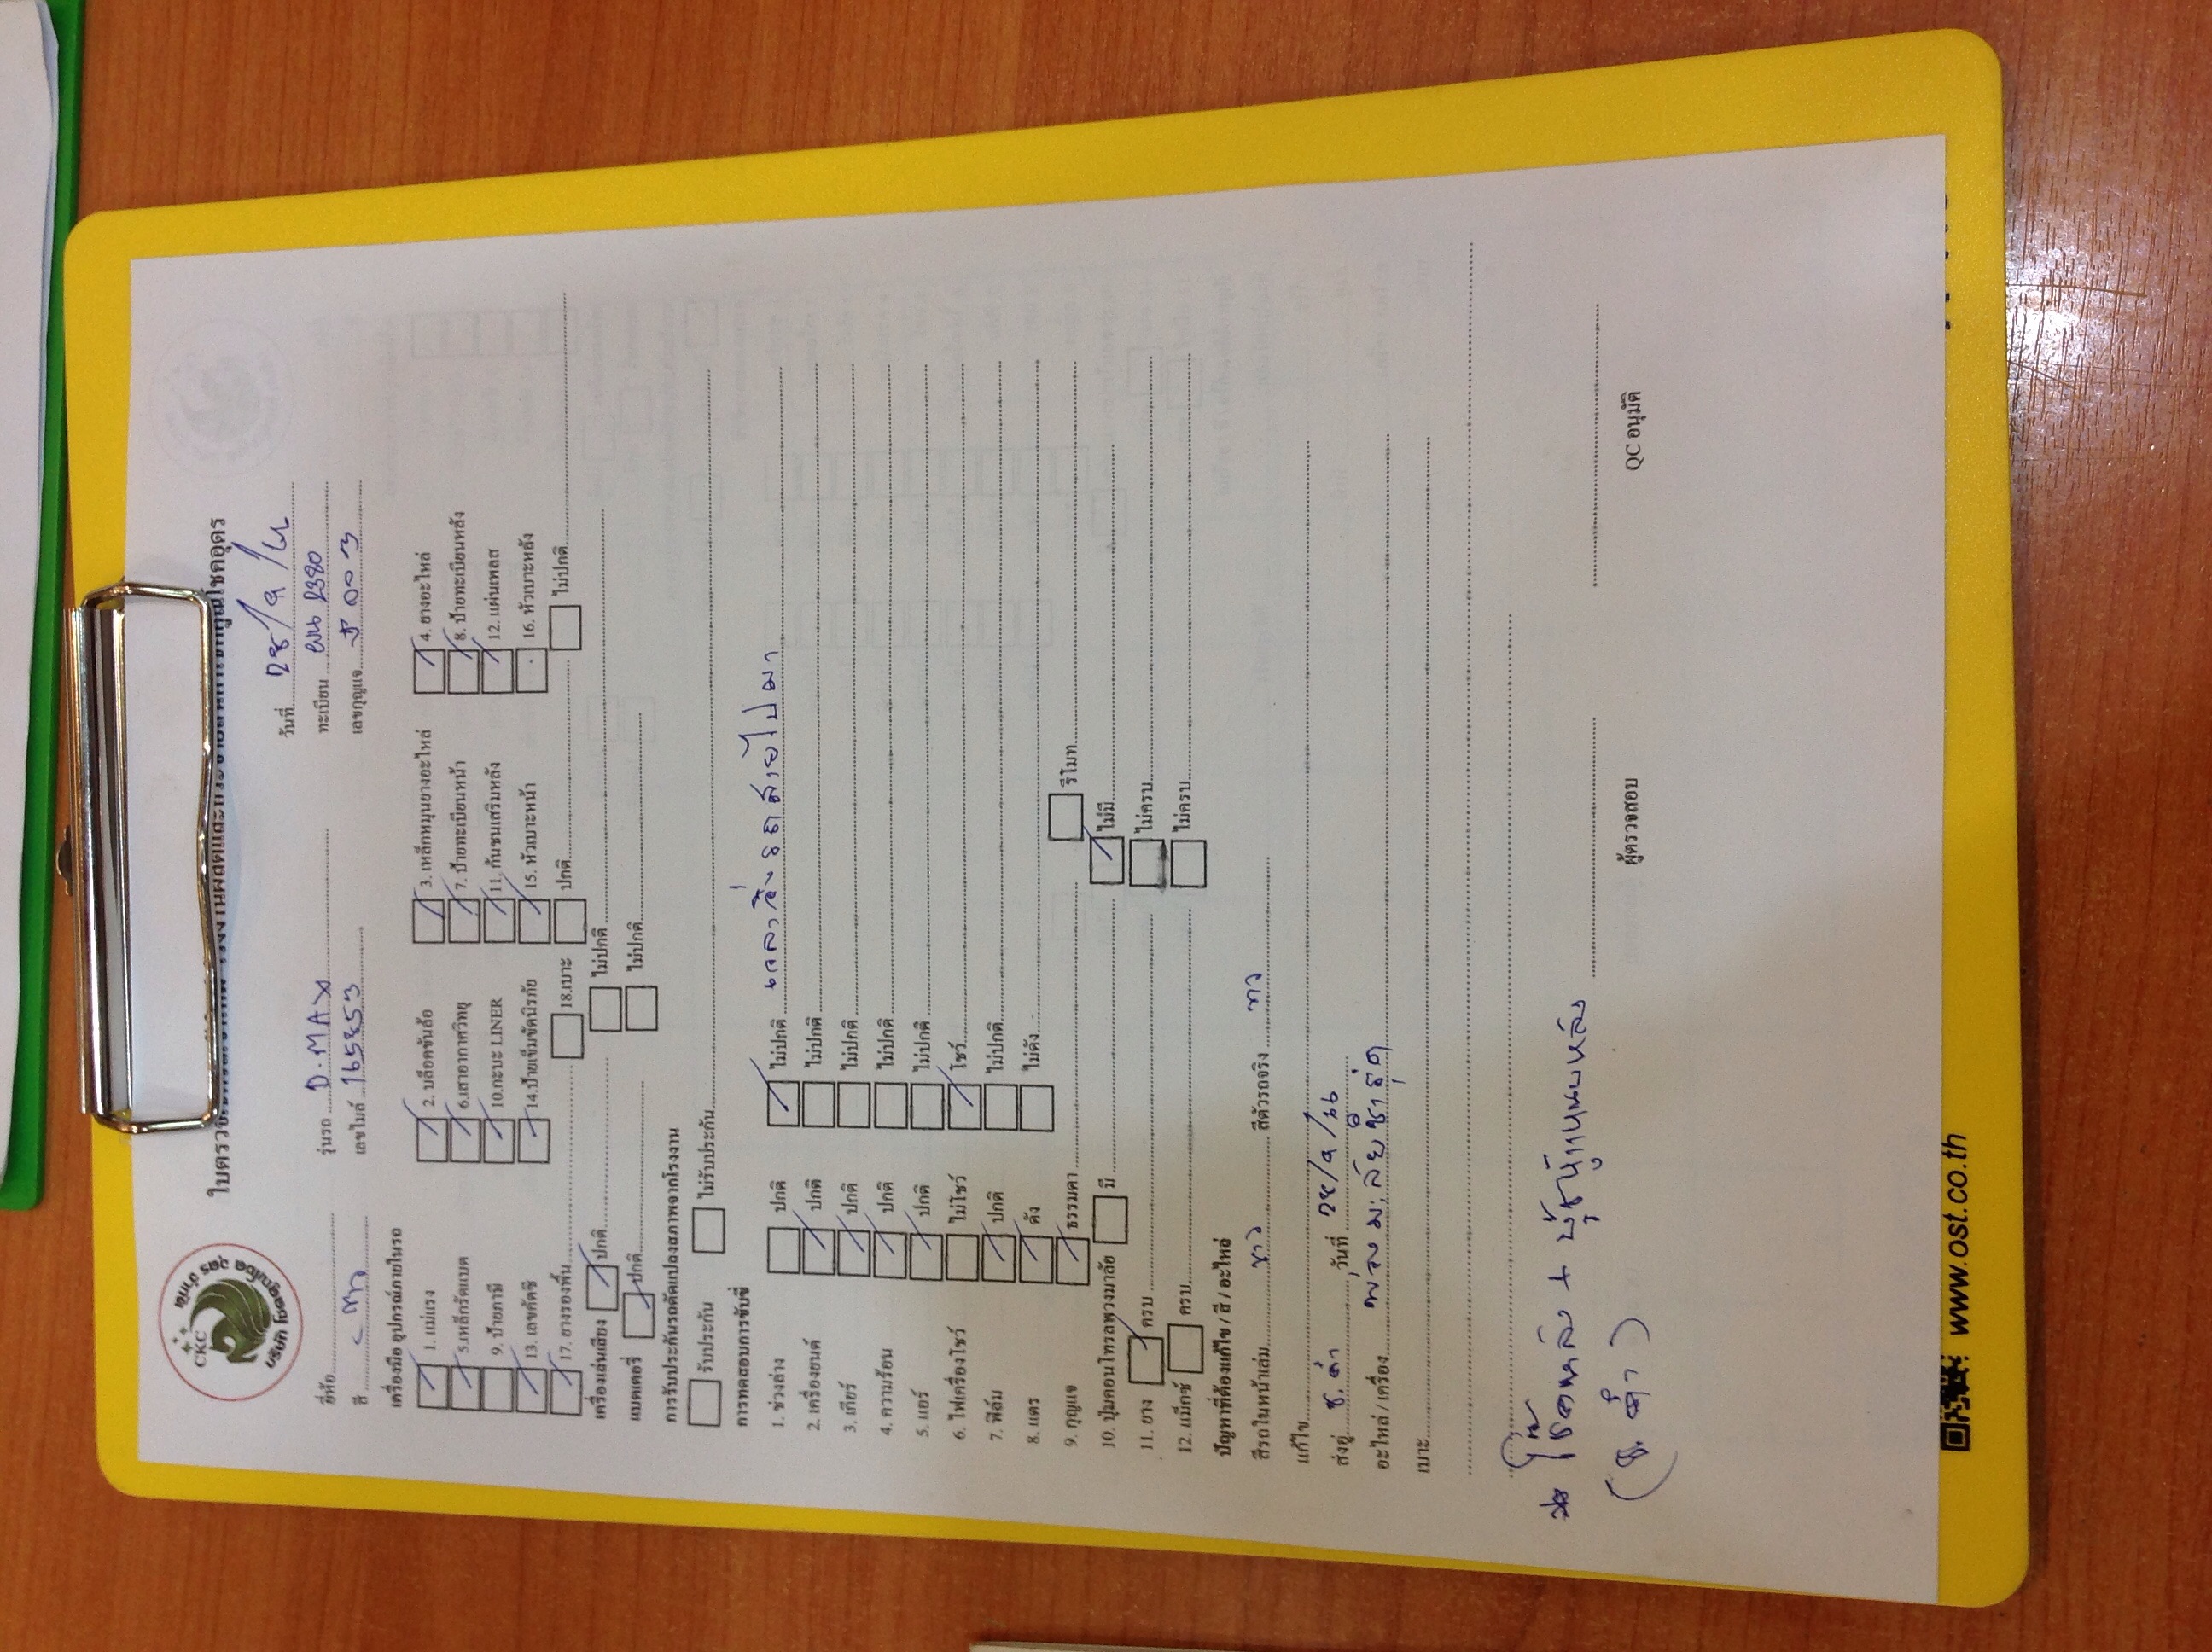 CKC
บริษัท โชคอุดูณ์โชค อุดร จำกัด
วันที่ 28/9/
ยี่ห้อ รุ่นรถ D-MAX ทะเบียน ผน 2380
สี เลขไมล์ 165853 เลขกุญแจ
เครื่องมือ อุปกรณ์ภายในรถ
1. แม่แรง 2. บล็อคขันล้อ 3. เหล็กหมุนยางอะไหล่ 4. ยางอะไหล่
5.เหล็กรัดแบต 6.เสาอากาศวิทยุ 7. ป้ายทะเบียนหน้า 8. ป้ายทะเบียนหลัง
9. ป้ายภาษี 10.กะบะ LINER 11. กันชนเสริมหลัง 12. แผ่นเพลส
13. เลขคัตซี 14.ป้ายเข็มขัดนิรภัย 15. หัวเบาะหน้า 16. หัวเบาะหลัง
17. ยางรองพื้น 18.เบาะ ปกติ ไม่ปกติ
เครื่องเล่นเสียง ปกติ ไม่ปกติ
แบตเตอรี่ ปกติ ไม่ปกติ
การรับประกันรถดัดแปลงสภาพจากโรงงาน
รับประกัน ไม่รับประกัน
การทดสอบการขับขี่
1. ช่วงล่าง ปกติ ไม่ปกติ เวลาวิ่งรถส่ายไปมา
2. เครื่องยนต์ ปกติ ไม่ปกติ
3. เกียร์ ปกติ ไม่ปกติ
4. ความร้อน ปกติ ไม่ปกติ
5. แอร์ ปกติ ไม่ปกติ
6. ไฟเครื่องโชว์ ไม่โชว์ โชว์
7. ฟิล์ม ปกติ ไม่ปกติ
8. แตร ดัง ไม่ดัง
9. กุญแจ ธรรมดา รีโมท
10. ปุ่มคอนโทรลพวงมาลัย มี ไม่มี
11. ยาง ครบ ไม่ครบ
12. แม็กซ์ ครบ ไม่ครบ
ปัญหาที่ต้องแก้ไข / สี / อะไหล่
สีรถในหน้าเล่ม ขาว สีตัวรถจริง ขาว
แก้ไข
ส่งอู่ ช.ดำ วันที่ 28/9/
อะไหล่ / เครื่อง พวงมะลัยชำรุด
เบาะ
โช๊คหลัง + บู๊ชหูแหนบหลัง
(ช.ดำ)
ผู้ตรวจสอบ QC อนุมัติ
www.ost.co.th